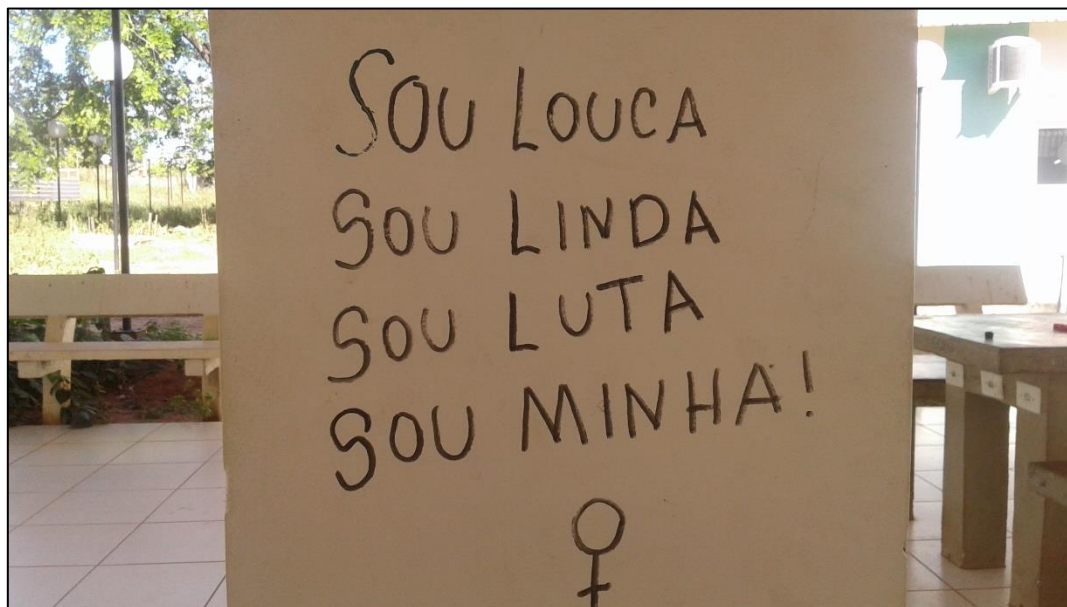 SOU LOUCA
SOU LINDA
SOU LUTA
SOU MINHA!